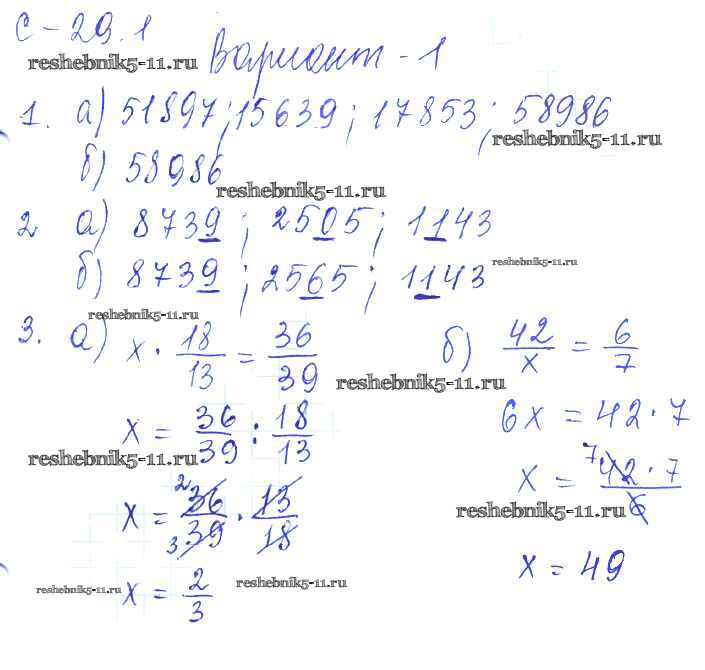 С-29.1
reshebnik5-11.ru Вариант-1
1. а) 51897; 15639; 17853; 58986
reshebnik5-11.ru
б) 58986
reshebnik5-11.ru
2 а) 8739; 2505; 1143
б) 8739; 2565; 1143
reshebnik5-11.ru
reshebnik5-11.ru
3. а) x · 18/13 = 36/39
б) 42/x = 6/7
reshebnik5-11.ru
x = 36/39 : 18/13
6x = 42 · 7
reshebnik5-11.ru
x = 2 36/3 39 · 13/18
x = 7 42 · 7/6
reshebnik5-11.ru
x = 2/3
x = 49
reshebnik5-11.ru
reshebnik5-11.ru